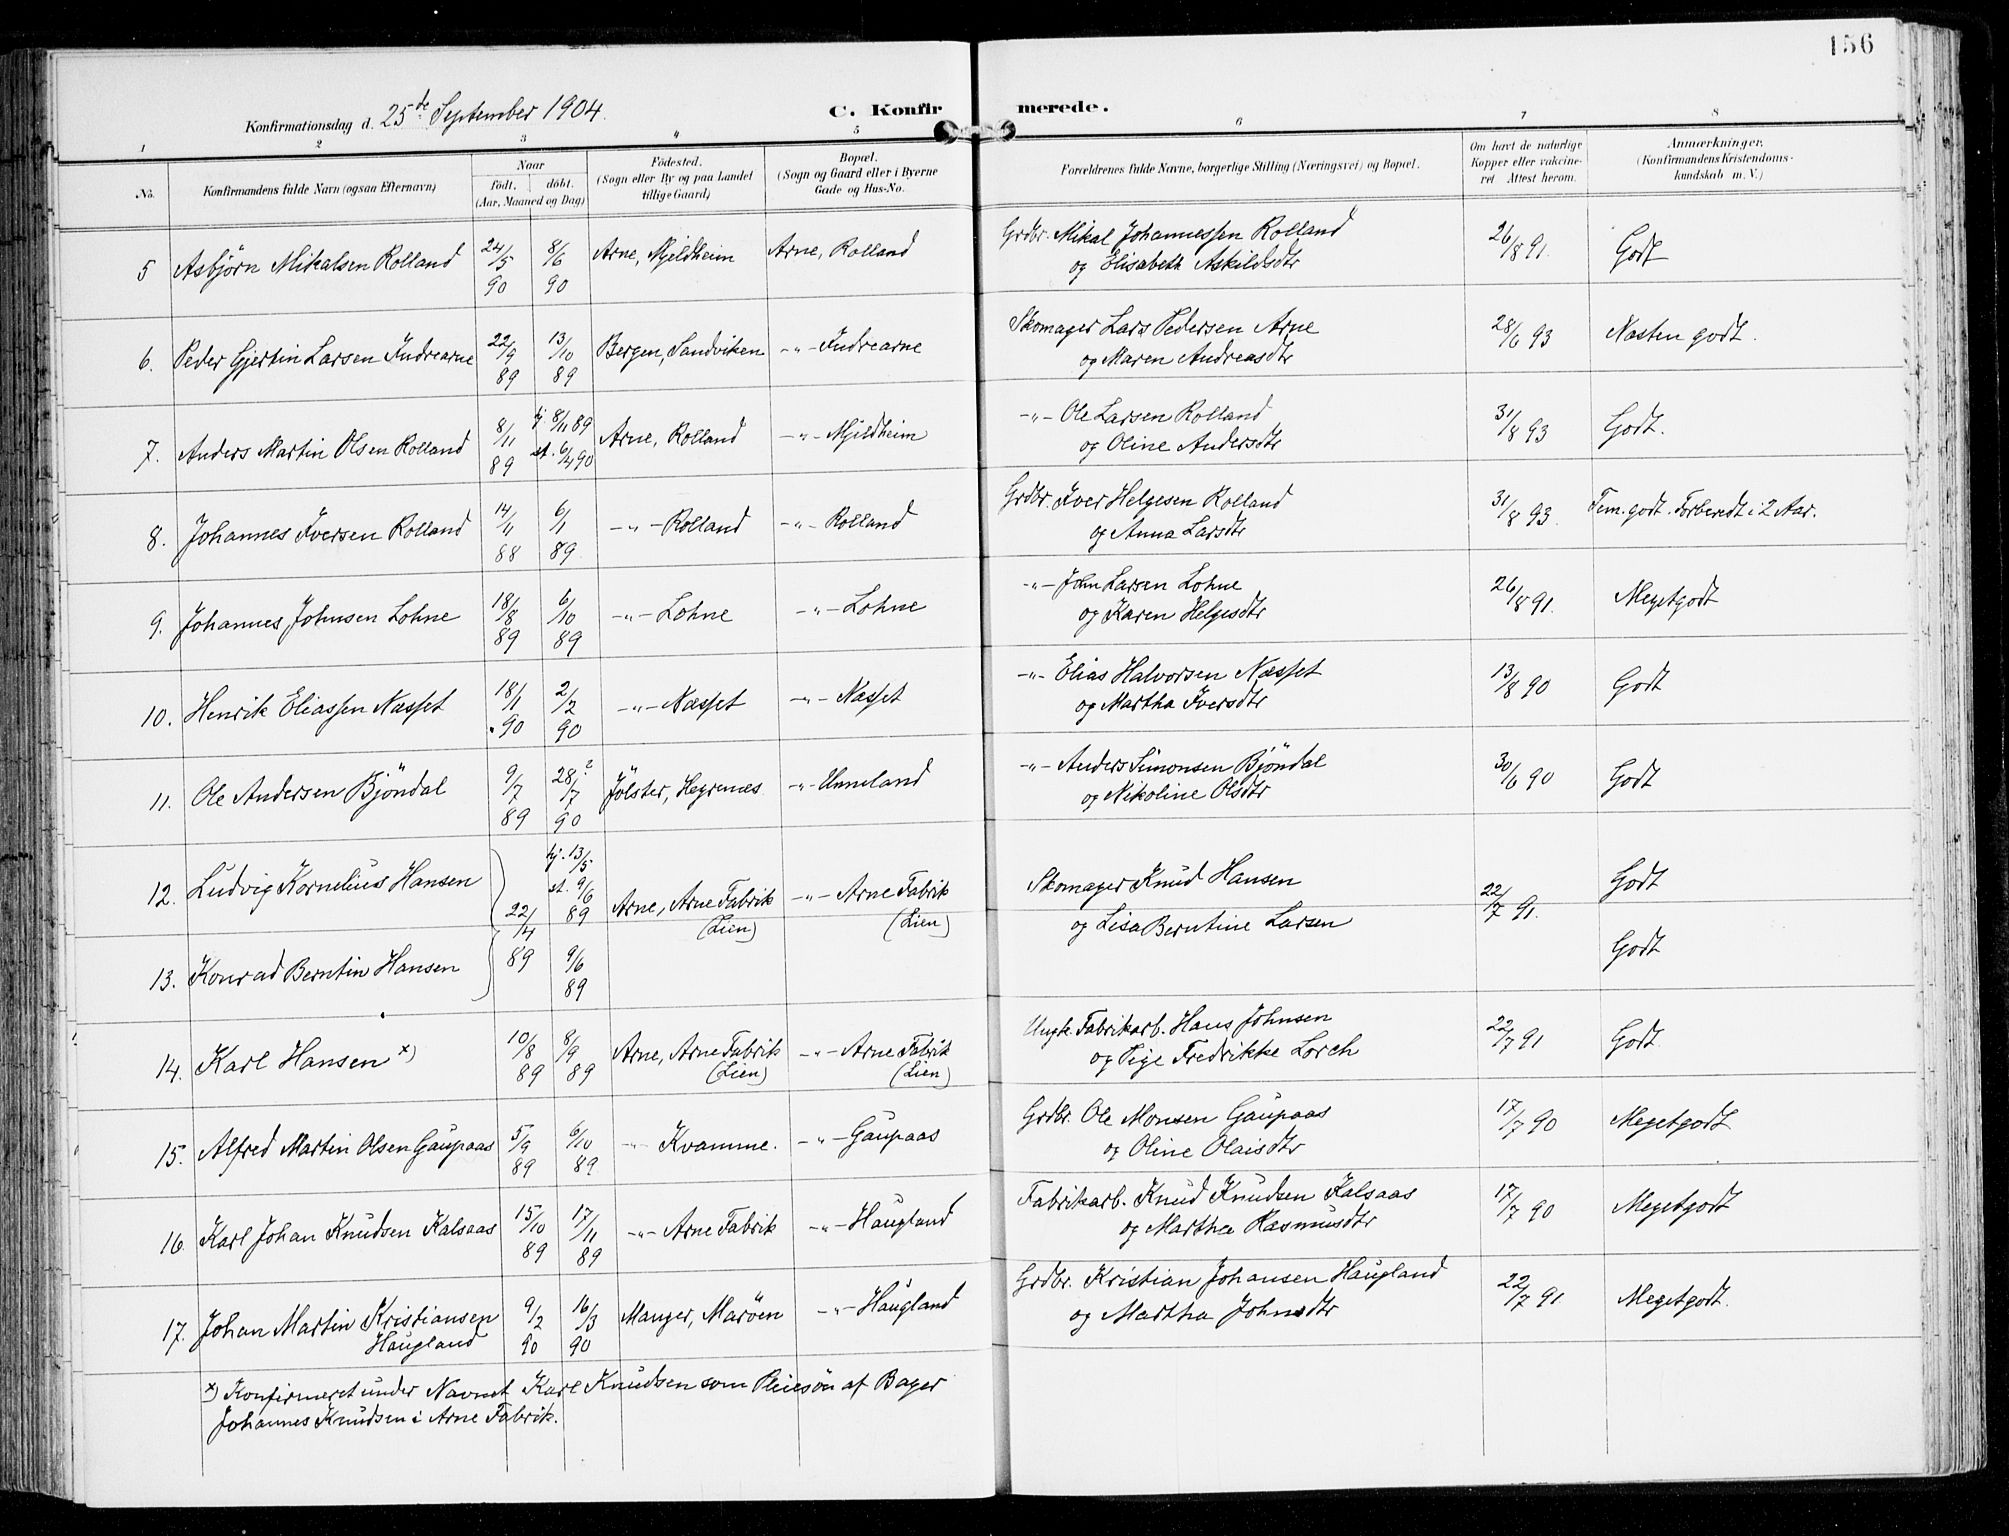 156
Konfirmationsdag d. 25de September 1904.
C. Konfirmerede.
1 2 3 4 5 6 7 8
No.
Konfirmandens fulde Navn (ogsaa Efternavn)
Naar
födt. döbt.
(Aar, Maaned og Dag)
Födested.
(Sogn eller By og paa Landet
tillige Gaard)
Bopæl.
(Sogn og Gaard eller i Byerne
Gade og Hus-No.
Forældrenes fulde Navne, borgerlige Stilling (Næringsvei) og Bopæl.
Om havt de naturlige
Kopper eller vakcine-
ret Attest herom.
Anmærkninger.
(Konfirmandens Kristendoms-
kundskab m. V.)
5 Asbjörn Mikalsen Rolland 24/5 90 8/6 90 Arne, Mjeldheim Arne, Rolland Grdbr. Mikal Johannessen Rolland
og Elisabeth Askildsdtr 26/8 91. Godt
6. Peder Gjertin Larsen Indrearne 22/9 89 13/10 89 Bergen, Sandviken -"- Indrearne Skomager Lars Pedersen Arne
og Maren Andreasdtr 28/6 93 Næsten godt.
7. Anders Martin Olsen Rolland 8/11 89 hj 8/11 89 st. 6/4 90 Arne, Rolland -"- Mjeldheim -"- Ole Larsen Rolland
og Oline Andersdtr 31/8 93 Godt.
8. Johannes Iversen Rolland 14/11 88 6/1 89. -"- Rolland -"- Rolland Grdbr. Iver Helgesen Rolland
og Anna Larsdtr 31/8 93. Tem. godt. Forberedt i 2 Aar.
9. Johannes Johnsen Lohne 18/8 89 6/10 89 -"- Lohne -"- Lohne -"- John Larsen Lohne
og Karen Helgesdtr 26/8 91. Megetgodt
10. Henrik Eliassen Næsset 18/1 90 2/2 90 -"- Næsset -"- Næsset -"- Elias Halvorsen Næsset
og Martha Iversdtr 13/8 90 Godt
11. Ole Andersen Bjöndal 9/7 89 28/7 ? 90 Jölster, Hegrenæs -"- Unneland -"- Anders Simonsen Bjöndal
og Nikoline Olsdtr 30/6 90 Godt
12. Ludvig Kornelius Hansen 22/4 89 hj. 13/5 st. 9/6 89 Arne, Arne Fabrik (Lien) -"- Arne Fabrik (Lien) Skomager Knud Hansen
og Lisa Berntine Larsen 22/7 91. Godt
13. Konrad Berntin Hansen 9/6 89 Godt
14. Karl Hansen x) 10/8 89 8/9 89 Arne, Arne Fabrik (Lien) -"- Arne Fabrik (Lien) Ungk. Fabrikarb. Hans Johnsen
og Pige Fredrikke Lorch 22/7 91 Godt
15. Alfred Martin Olsen Gaupaas 5/9 89 6/10 89 -"- Kvamme. -"- Gaupaas Grdbr. Ole Monsen Gaupaas
og Oline Olaisdtr 17/7 90 Megetgodt
16. Karl Johan Knudsen Kalsaas 15/10 89 17/11 89 -"- Arne Fabrik -"- Haugland Fabrikarb. Knud Knudsen Kalsaas
og Martha Rasmusdtr 17/7 90 Megetgodt
17. Johan Martin Kristiansen
Haugland 9/2 90 16/3 90 Manger, Maröen -"- Haugland Grdbr. Kristian Johansen Haugland
og Martha Johnsdtr 22/7 91. Megetgodt.
x) Konfirmeret under Navnet Karl Knudsen som Pleiesön af Bager
Johannes Knudsen i Arne Fabrik.